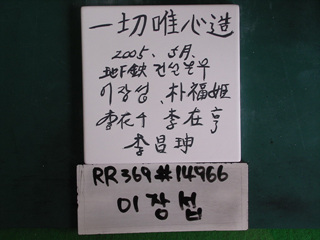 一切唯心造
2005. 5月.
地下鉄 건설본부
이장섭, 朴福姫
李在亨
李昌珅
RR369#14966
이장섭